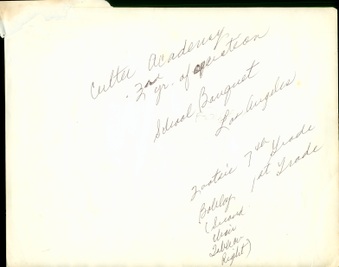 Cutter Academy
2nd yr. of operation
School Banquet
Los Angeles
7th Grade
Bobby 1st Grade
(Second
Table
Right)